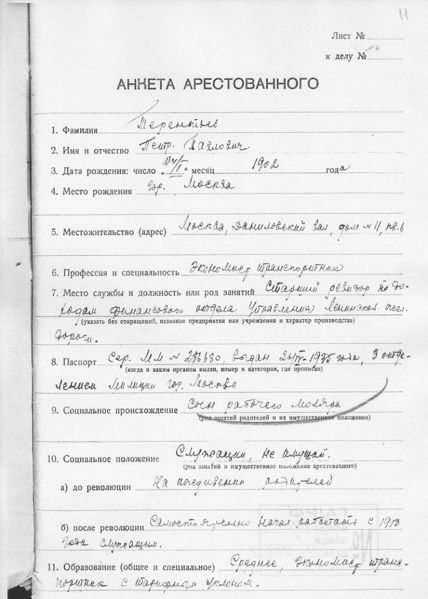 11
Лист №
к делу №
АНКЕТА АРЕСТОВАННОГО
1. Фамилия Терентьев
2. Имя и отчество Петр Павлович
3. Дата рождения: число месяц 1902 года
4. Место рождения гор. Москва
5. Местожительство (адрес) Москва, Даниловский вал, дом № 11, кв. 1
6. Профессия и специальность Экономист транспортник
7. Место службы и должность или род занятий Старший ревизор по до-
ходам финансового отдела Управления Ленинской жел.
(указать без сокращений, название предприятия или учреждения и характер производства)
дороги.
8. Паспорт Сер. ММ № выдан 1935 года, 3 отде-
(когда и каким органом выдан, номер и категория, где прописан)
лением Милиции гор. Москва
9. Социальное происхождение Сын рабочего маляра
(род занятий родителей и их имущественное положение)
10. Социальное положение Служащий, не имущий.
(род занятий и имущественное положение арестованного)
а) до революции На иждивении родителей
б) после революции Самостоятельно начал работать с
года служащим.
11. Образование (общее и специальное) Среднее, экономист транс-
портник с тарифным уклоном.